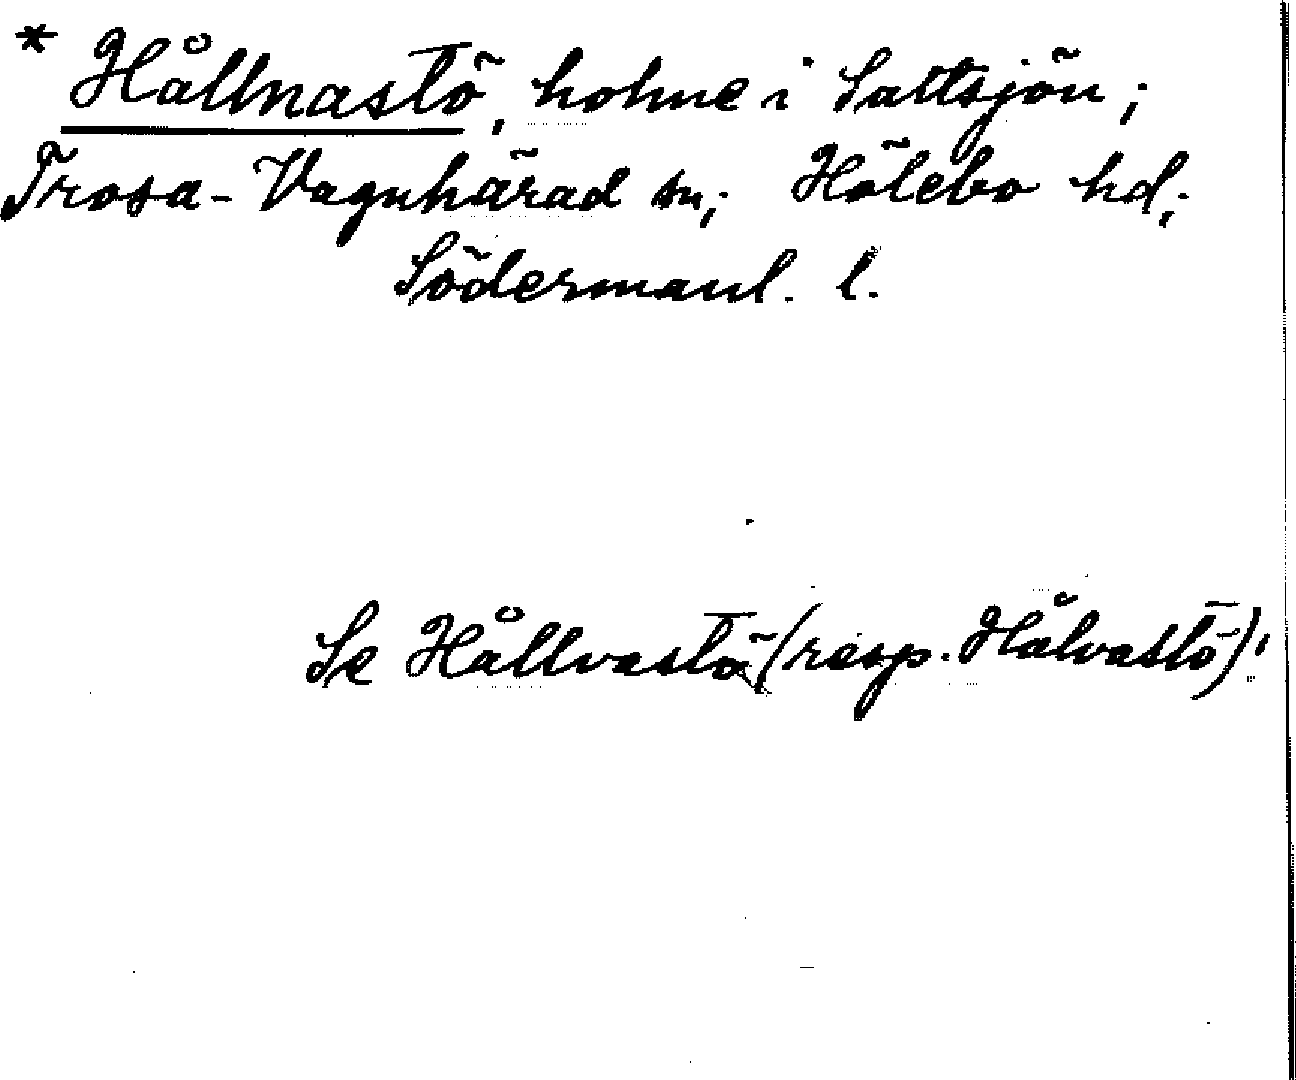 * Hållnastö, holme i Saltsjön;
Trosa-Vagnhärad sn; Hölebo hd;
Södermanl. l.
Se Hållvastö (resp. Hålvastö)!